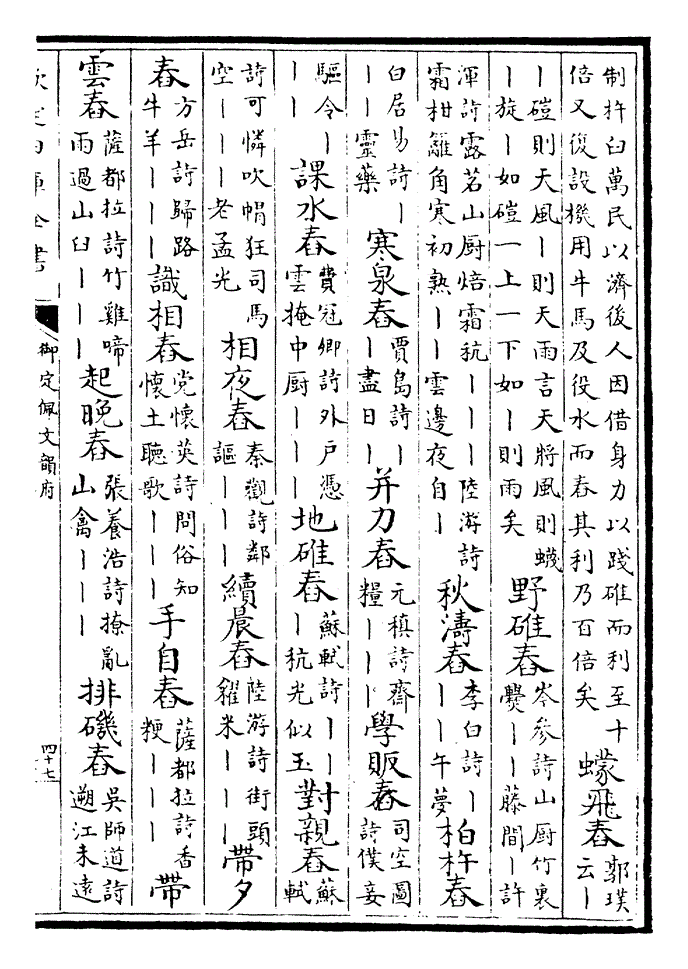 制杵臼萬民以濟後人因借身力以踐碓而利至十
倍又復設機用牛馬及役水而舂其利乃百倍矣
蠓飛舂
郭璞
云丨
丨磑則天風丨則天雨言天將風則蠛
丨旋丨如磑一上一下如丨則雨矣
野碓舂
岑參詩山厨竹裏
爨丨丨藤間丨許
渾詩露茗山厨焙霜秔丨丨丨陸游詩
霜柑籬角寒初熟丨丨雲邊夜自丨
秋濤舂
李白詩丨
丨丨午夢
柏杵舂
白居易詩丨
丨丨靈藥
寒泉舂
賈島詩丨
丨盡日丨
并刀舂
元稹詩齋
糧丨丨丨
學販舂
司空圖
詩僕妾
驅令丨
丨丨
課水舂
費冠卿詩外户憑
雲掩中厨丨丨丨
地碓舂
蘇軾詩丨丨
丨秔光似玉
對親舂
蘇
軾
詩可憐吹㡌狂司馬
空丨丨丨丨老孟光
相夜舂
秦觀詩鄰
謳丨丨丨
續晨舂
陸游詩街頭
糴米丨丨丨
帶夕
舂
方岳詩歸路
牛羊丨丨丨
識相舂
党懷英詩問俗知
懷土聽歌丨丨丨
手自舂
薩都拉詩香
粳丨丨丨
帶
雲舂
薩都拉詩竹雞啼
雨過山臼丨丨丨
起晚舂
張養浩詩撩亂
山禽丨丨丨
排磯舂
吳師道詩
遡江未遠
欽定四庫全書
御定佩文韻府
四十七